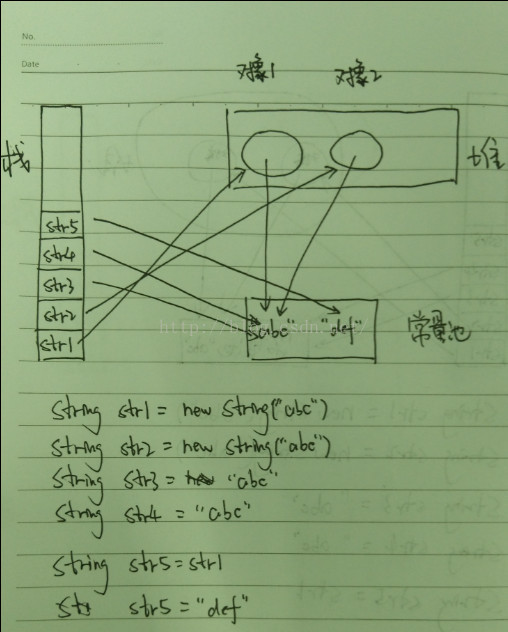 No.
Date
对象1 对象2
栈
堆
str5
str4
str3
str2
str1
"abc" "def"
常量池
String str1 = new String("abc")
String str2 = new String("abc")
String str3 = "abc"
String str4 = "abc"
String str5 = str1
str5 = "def"